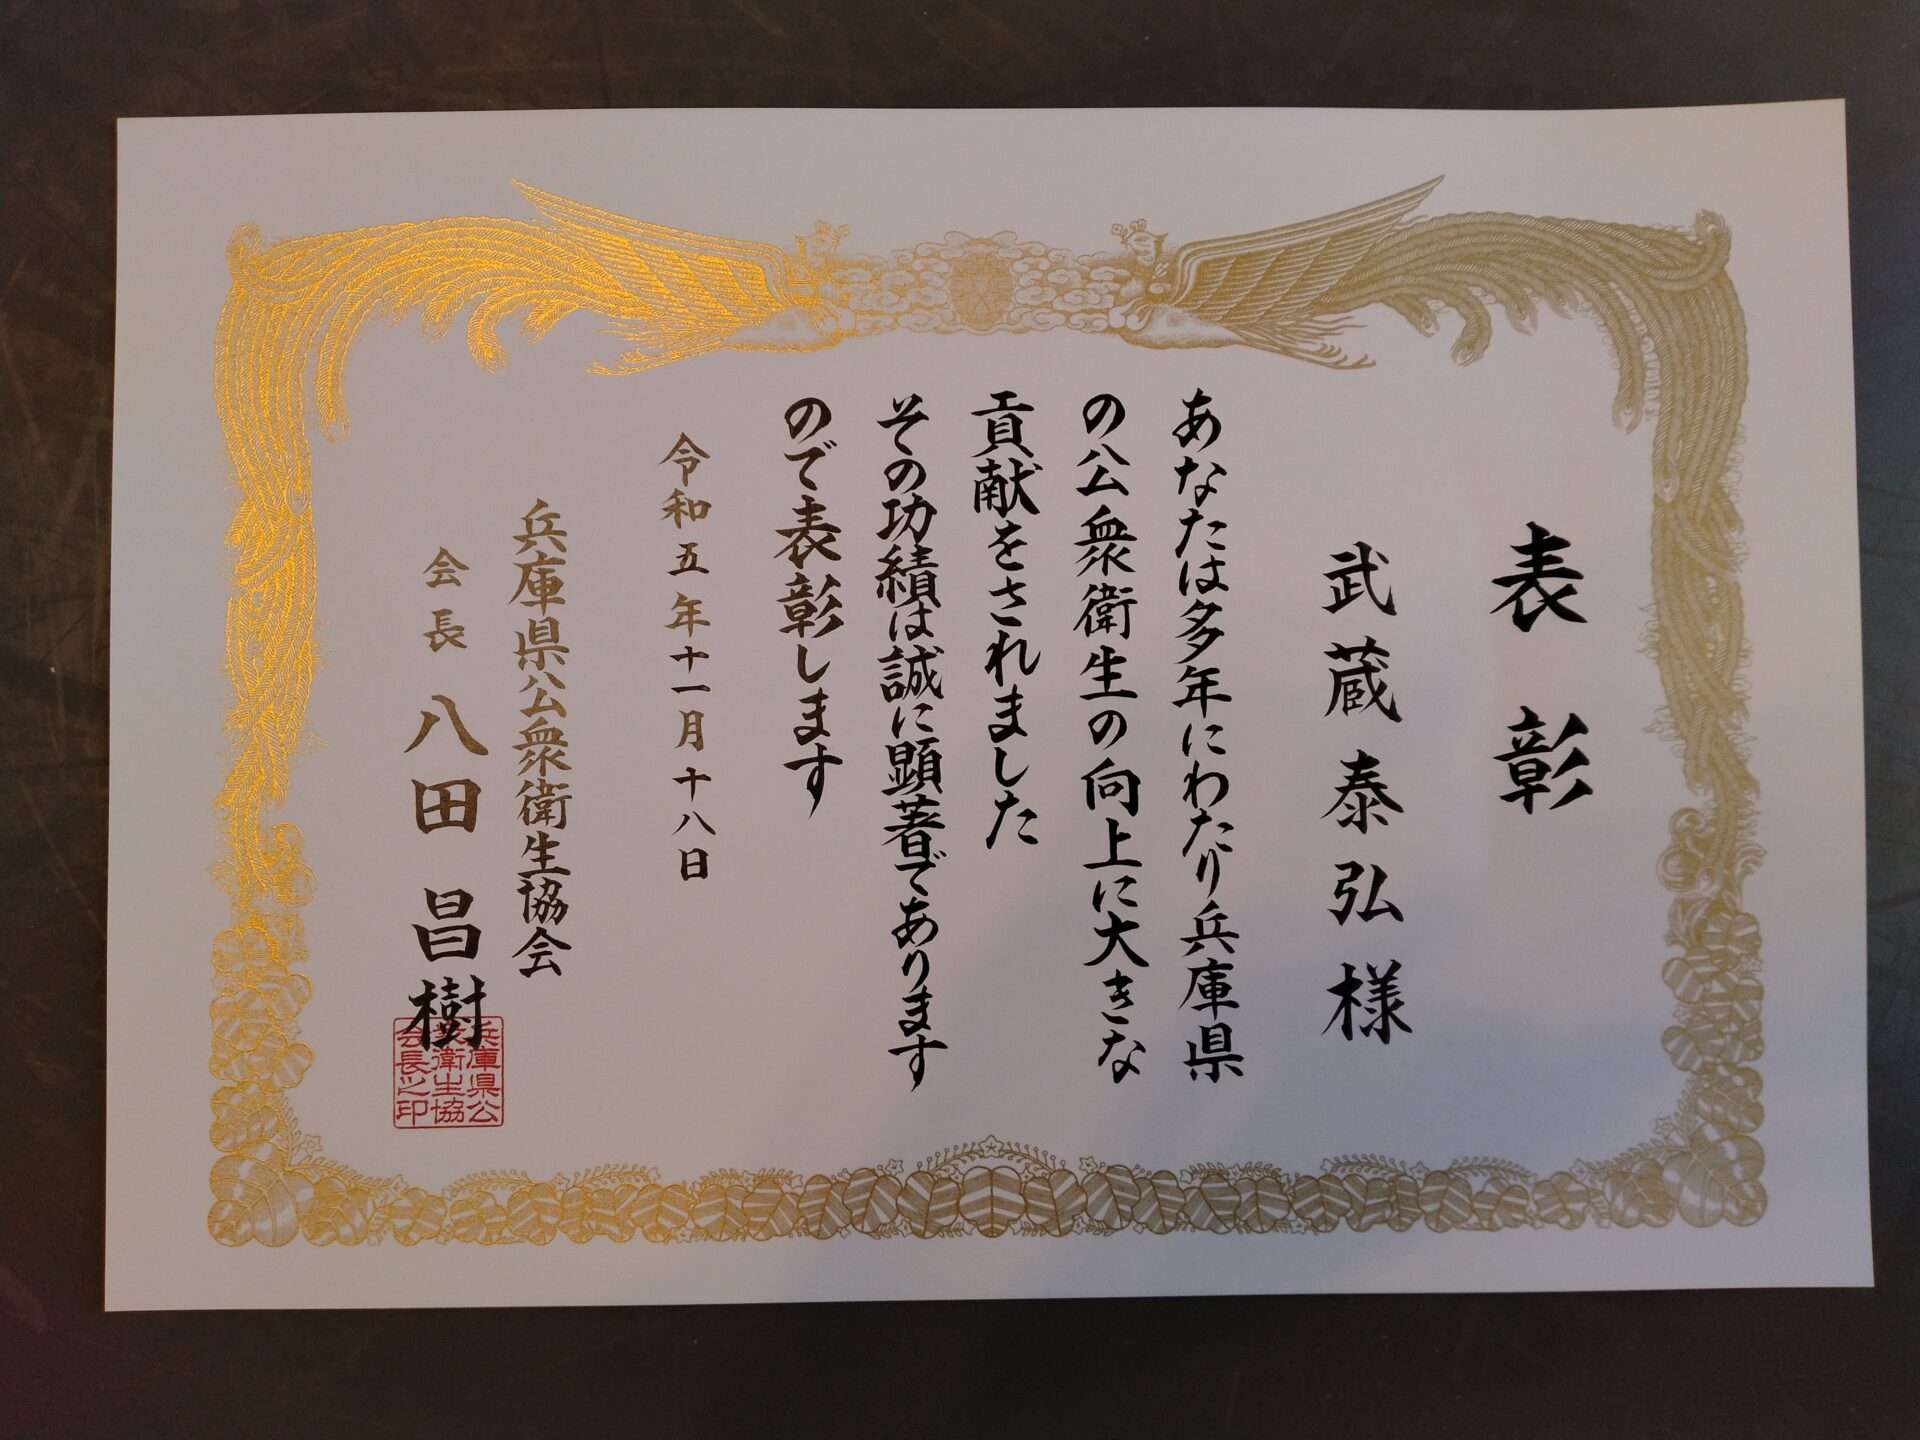 表彰
武蔵泰弘様
あなたは多年にわたり兵庫県
の公衆衛生の向上に大きな
貢献をされました
その功績は誠に顕著であります
ので表彰します
令和五年十一月十八日
兵庫県公衆衛生協会
会長 八田昌樹
兵庫県公
衆衛生協
会長之印